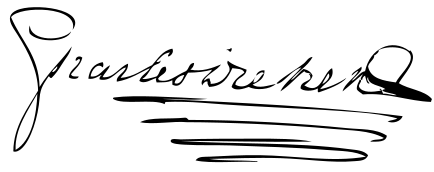 Charles Dickens